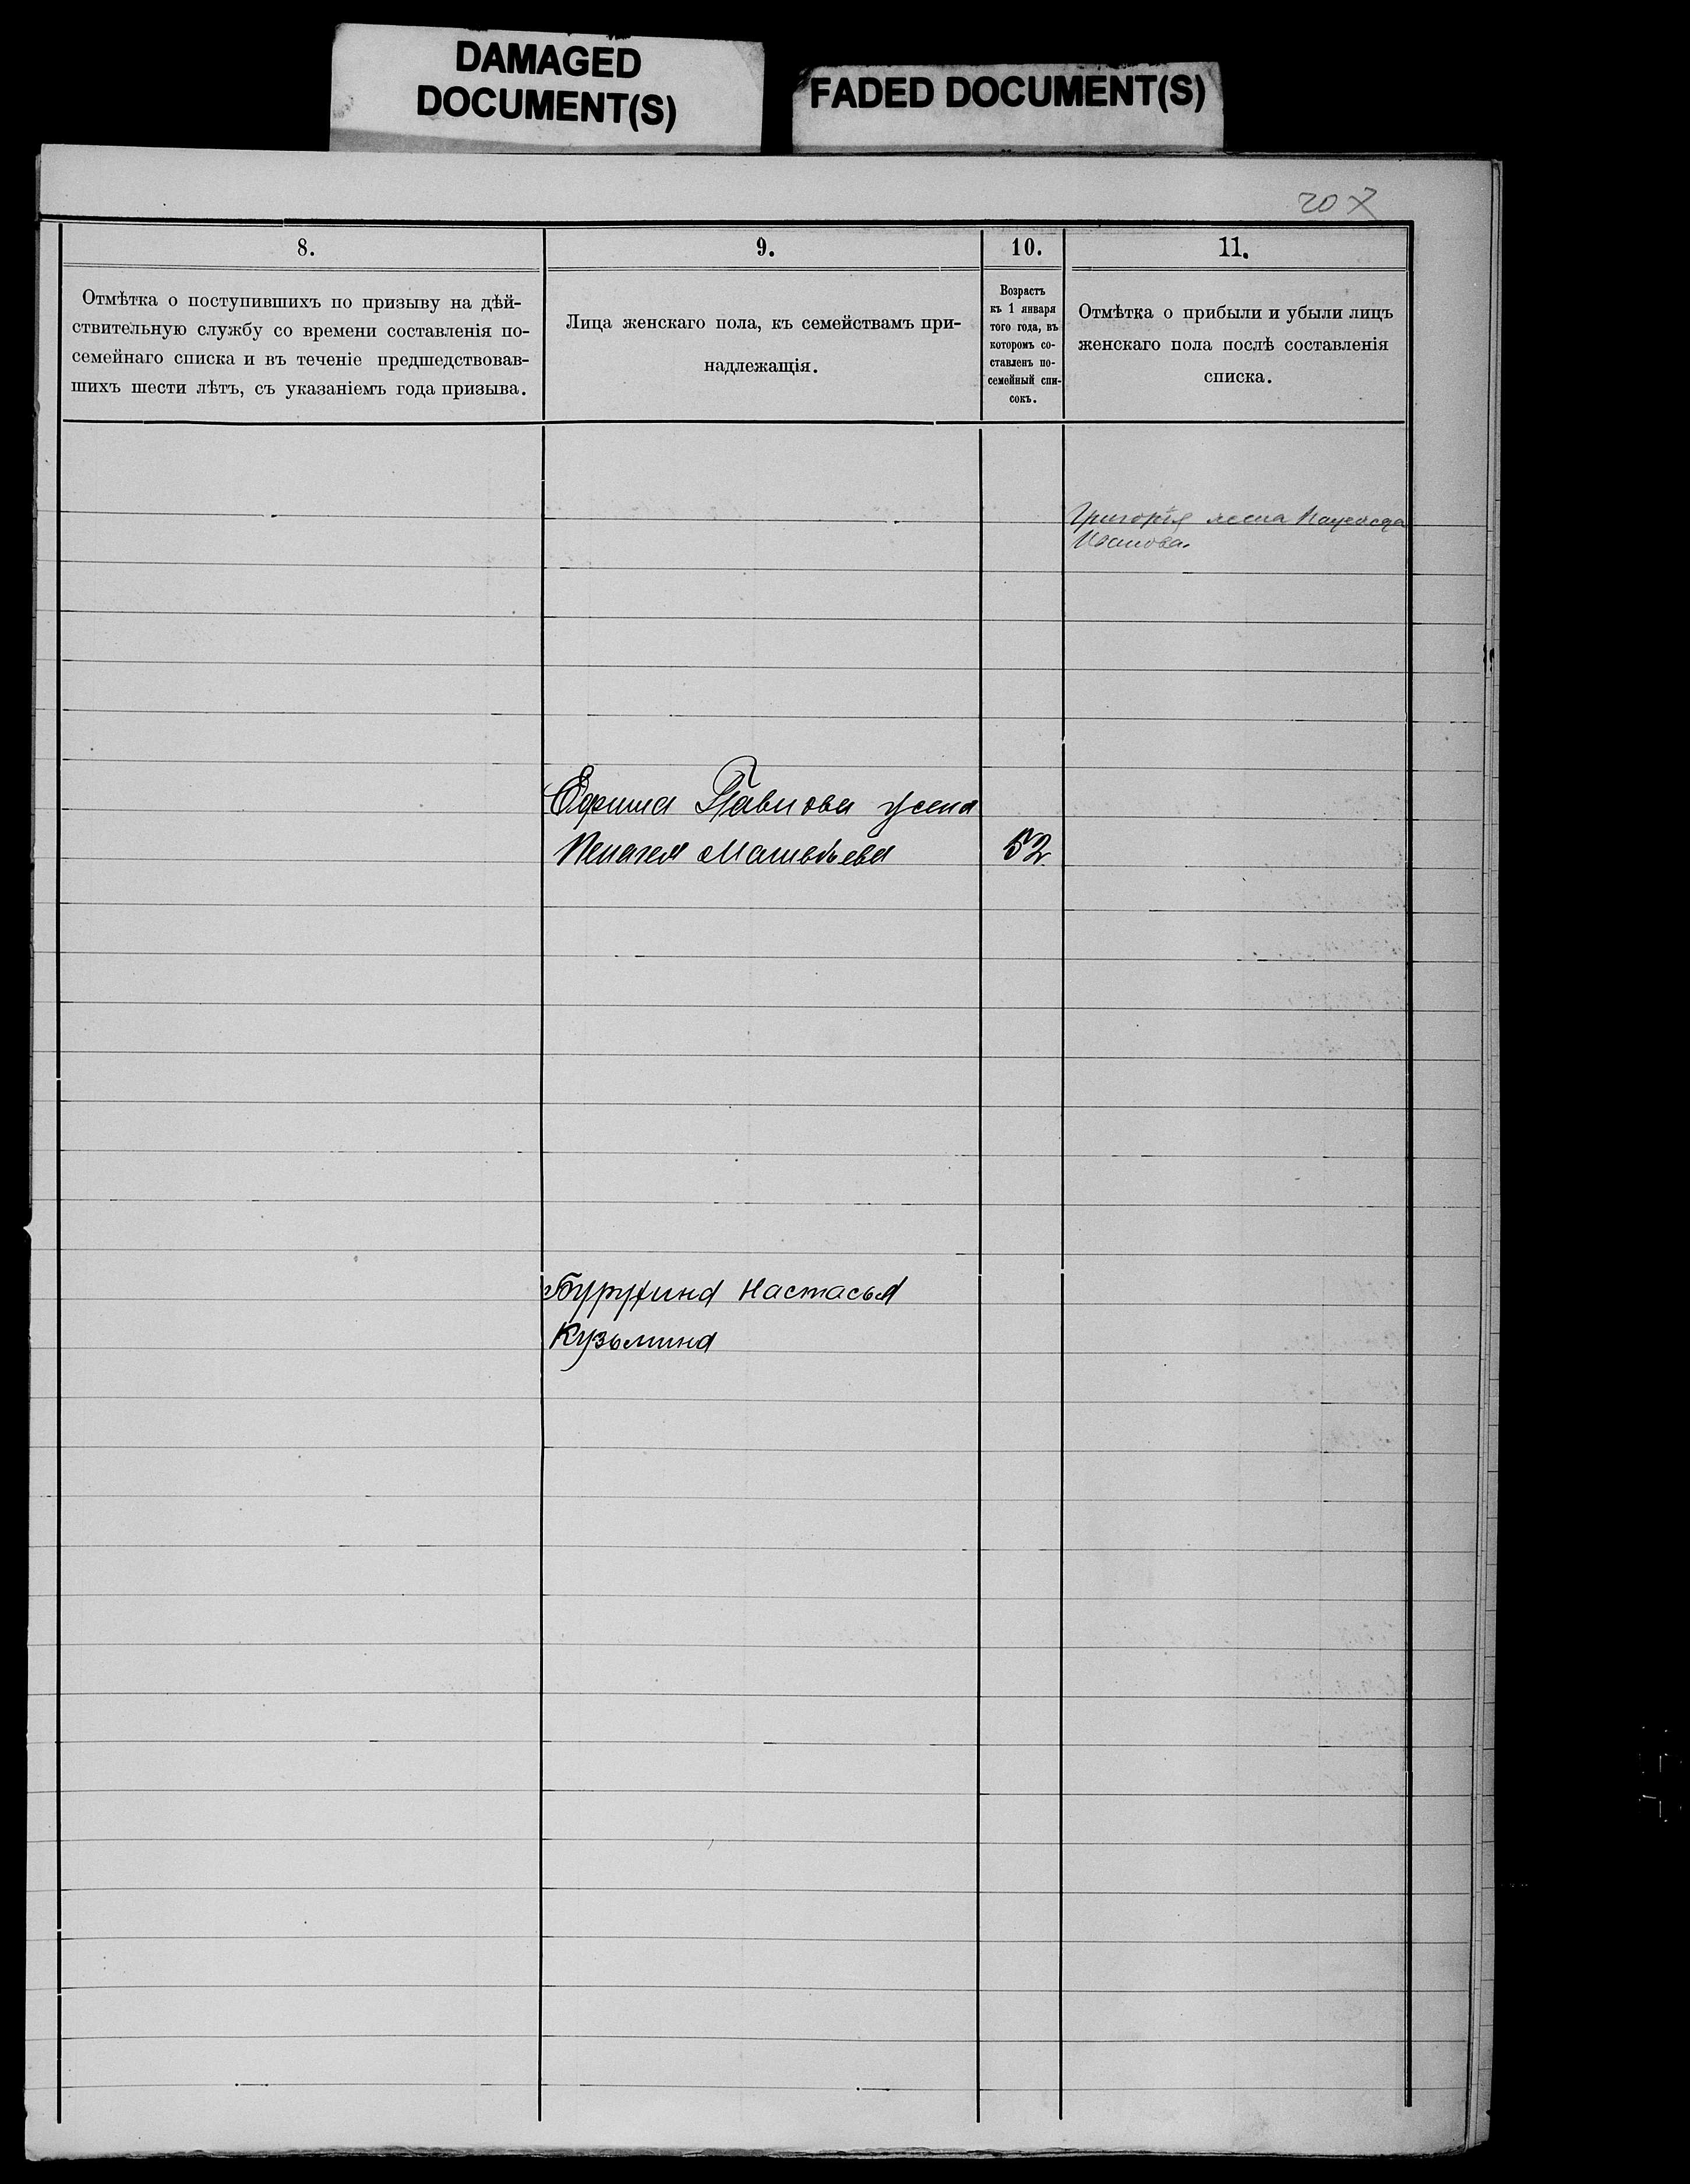 DAMAGED
DOCUMENT(S)
FADED DOCUMENT(S)
207
8.
9.
10.
11.
Отмѣтка о поступившихъ по призыву на дѣй-
ствительную службу со времени составленія по-
семейнаго списка и въ теченіе предшедствовав-
шихъ шести лѣтъ, съ указаніемъ года призыва.
Лица женскаго пола, къ семействамъ при-
надлежащія.
Возрастъ
къ 1 января
того года, въ
которомъ со-
ставленъ по-
семейный спи-
сокъ.
Отмѣтка о прибыли и убыли лицъ
женскаго пола послѣ составленія
списка.
Григорія жена Надежда
Иванова.
Ефима Павлова жена
Пелагея Матвѣева
52
Бурухина Настасья
Кузьмина